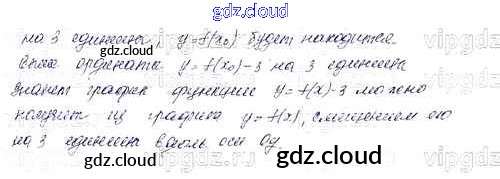 gdz.cloud
на 3 единицы, y=f(x₀) будет находится
выше ординаты y=f(x₀)-3 на 3 единицы
Значит график функции y=f(x)-3 можно
получить из графика y=f(x), смещением его
на 3 единицы вдоль оси Oy.
gdz.cloud
gdz.cloud
vipgdz
vipgdz
vipgdz
gdz.cloud